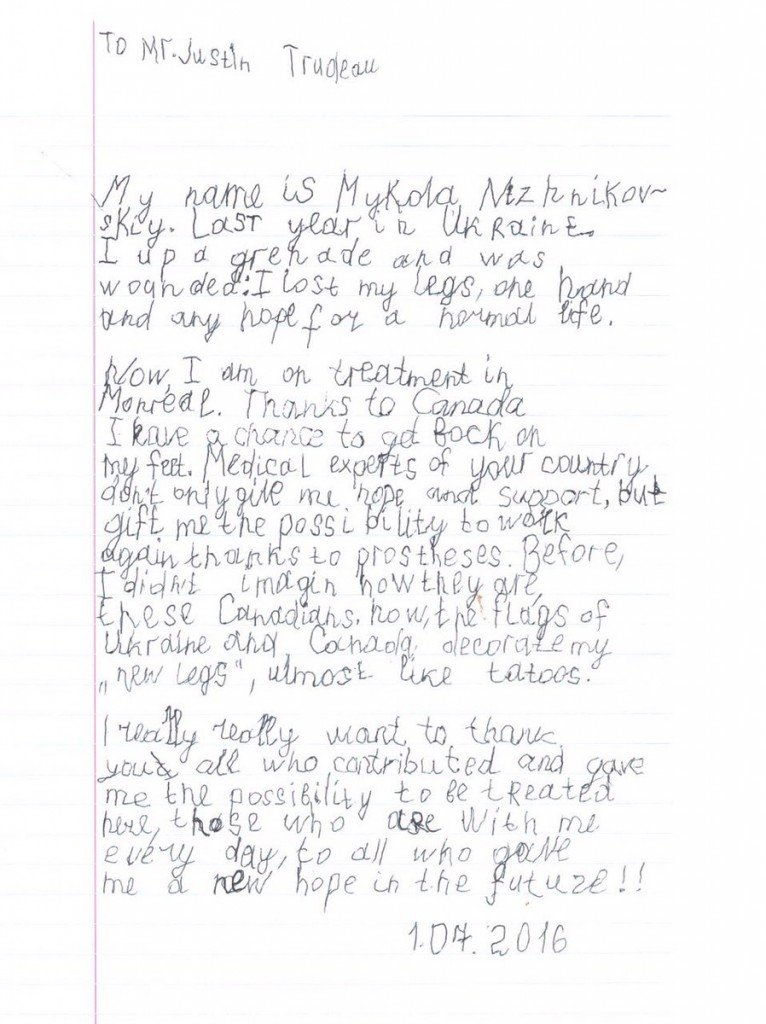 To Mr. Justin Trudeau
My name is Mykola Nizhnikov~
skiy. Last year in Ukraine
I up a grenade and was
wounded: I lost my legs, one hand
and any hope for a normal life.
Now, I am on treatment in
Monreal. Thanks to Canada
I have a chance to get back on
my feet. Medical experts of your country
don't only give me hope and support, but
gift me the possibility to work
again thanks to prostheses. Before,
I didn't imagin how they are,
these Canadians. now, the flags of
Ukraine and Canada decorate my
„new legs“, ulmost like tatoos.
I really really want to thank
you & all who contributed and gave
me the possibility to be treated
here, those who are with me
every day, to all who gave
me a new hope in the future!!
1.07.2016